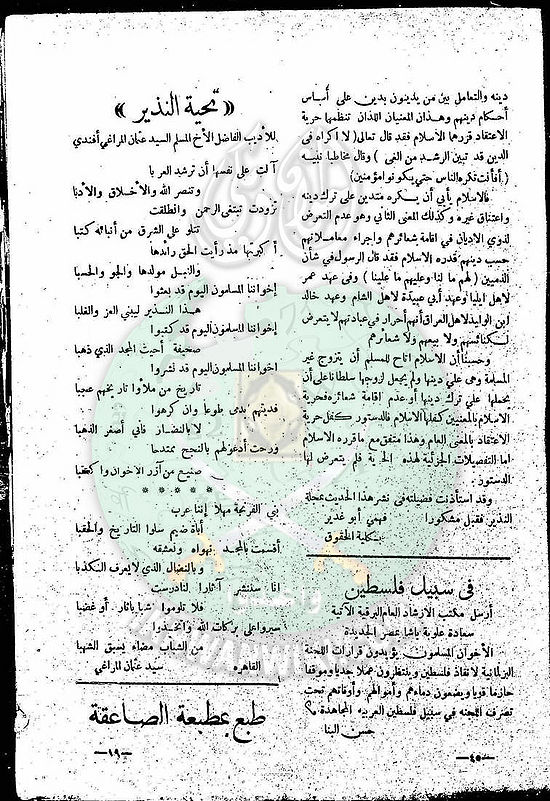 دينه والتعامل بين من يدينون بدين على أساس
أحكام دينهم وهذان المعنيان اللذان تنظمهما حرية
الاعتقاد قررها الاسلام فقد قال تعالى (لا اكراه فى
الدين قد تبين الرشد من الغى) وقال مخاطبا نبيه
(أفأنت تكره الناس حتى يكونوا مؤمنين)
فالاسلام يأبى أن يكره متدين على ترك دينه
واعتناق غيره وكذلك المعنى الثانى وهو عدم التعرض
لذوى الاديان فى اقامة شعائرهم واجراء معاملاتهم
حسب دينهم قدره الاسلام فقد قال الرسول فى شأن
الذميين (لهم ما لنا وعليهم ما علينا) وفى عهد عمر
لاهل ايليا وعهد أبى عبيدة لاهل الشام وعهد خالد
ابن الوليد لاهل العراق أنهم أحرار فى عبادتهم لا يتعرض
لكنائسهم ولا بيعهم ولا شعائرهم
وحسبنا أن الاسلام اتاح للمسلم أن يتزوج غير
المسلمة وهى على دينها ولم يجعل لزوجها سلطانا على أن
يحملها على ترك دينها أو عدم اقامة شعائره فحرية
الاسلام بالمعنيين كفلها الاسلام فالدستور كفل حرية
الاعتقاد بالمعنى العام وهذا متفق مع ما قرره الاسلام
اما التفصيلات الجزئية لهذه الحرية فلم يتعرض لها
الدستور
وقد استأذنت فضيلته فى نشر هذا الحديث بمجلة
النذير فقبل مشكورا فهمى أبو غدير
بكلية الحقوق
فى سبيل فلسطين
أرسل مكتب الارشاد العام البرقية الآتية
سعادة علوبة باشا بمصر الجديدة
الأخوان المسلمون يؤيدون قرارات اللجنة
البرلمانية لانقاذ فلسطين وينتظرون عملا جديا وموقفا
حازما قويا ويضعون دماءهم وأموالهم وأوقاتهم تحت
تصرف اللجنه فى سبيل فلسطين العربيه المجاهدة
حسن البنا
—٤٥—
« تحية النذير »
للأديب الفاضل الأخ المسلم السيد عثمان المراغى أفندى
آلت على نفسها أن ترشد العربا
وتنصر الله والأخلاق والأدبا
تزودت تبتغى الرحمن وانطلقت
تتلو على الشرق من أنبائه كتبا
أكبرتها مذ رأيت الحق رائدها
والنبل مولدها والجو والحسبا
إخواننا المسلمون اليوم قد بعثوا
هذا النذير ليبنى العز والغلبا
إخواننا المسلمون اليوم قد كتبوا
صحيفة أحيت المجد الذى ذهبا
اخواننا المسلمون اليوم قد نشروا
تاريخ من ملأوا تاريخهم عجبا
فديتهم بدمى طوعا وان كرهوا
لا بالنضار فانى أصغر الذهبا
ورحت أدعو لهم بالنجح ممتدحا
صنيع من آزر الاخوان
* * * * * *
بنى الفرنجة مهلا إننا عرب
أباة ضيم سلوا التاريخ والحقبا
أقسمت بالمجد نهواه ونعشقه
وبالنضال الذى لا يعرف الكذبا
انا سننشر آثارا لنا درست
فلا تلوموا شبابا ثار أو غضبا
سيروا على بركات الله واتخذوا
من الشباب مضاء يسبق الشهبا
القاهره سيد عثمان المراغى
طبع بمطبعة الصاعقة
—١٩—